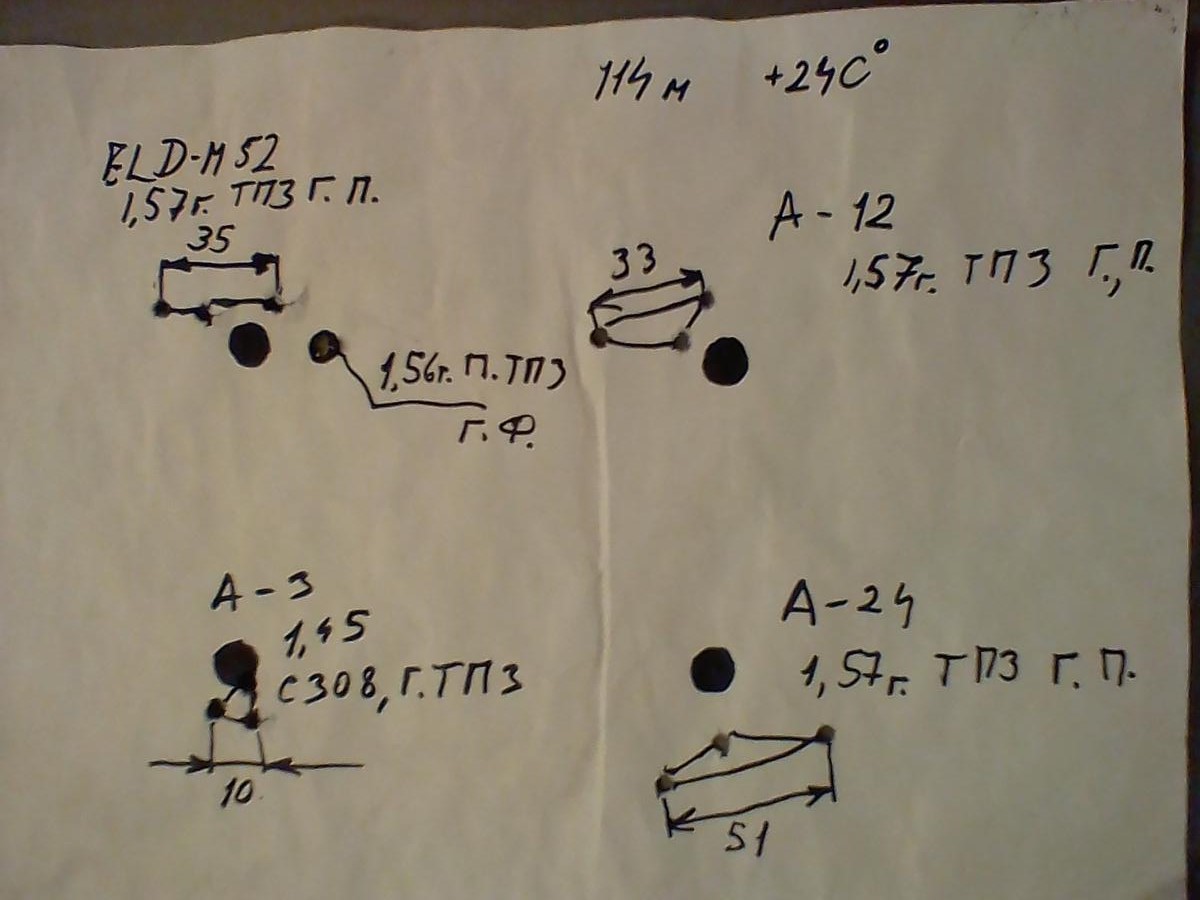 114 м +24С°
ELD-М 52
1,57г. ТПЗ Г. П.
35
А - 12
1,57г. ТПЗ Г., П.
33
1,56г. П. ТПЗ
Г. Ф.
А - 3
1,45
С308, Г. ТПЗ
10
А - 24
1,57г. ТПЗ Г. П.
51